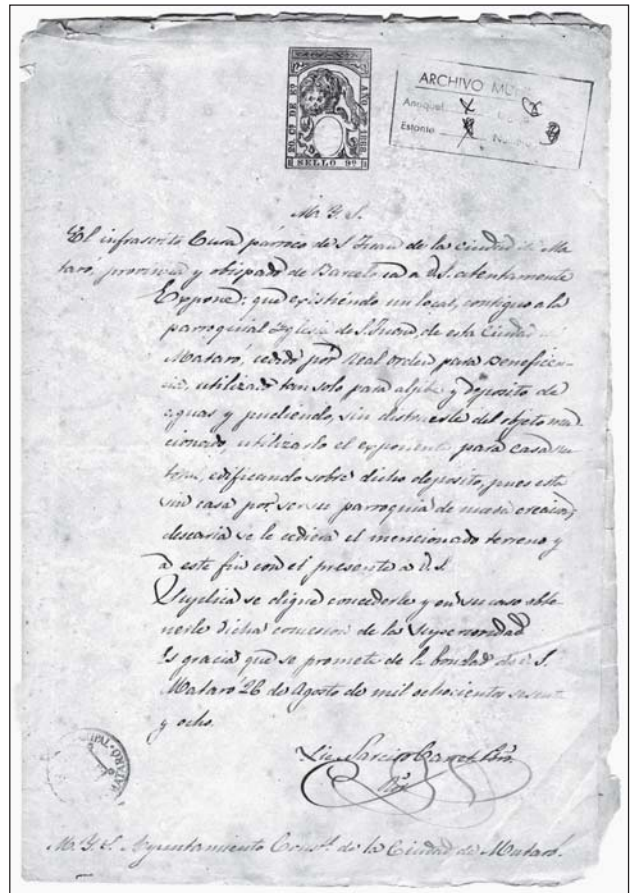 20 Cs DE Eo
AÑO 1868
SELLO 9º
ARCHIVO MU
Estante
M. Y. S.
El infrascrito Cura párroco de S. Juan de la Ciudad de Ma-
taró, provincia y obispado de Barcelona a V.S. atentamente
Expone: que existiendo un local, contiguo a la
parroquial Iglesia de S. Juan, de esta Ciudad de
Mataró, cedido por Real orden para Beneficen-
cia, utilizado tan solo para aljibe y deposito de
aguas y pudiendo, sin distraerle del objeto men-
cionado, utilizarlo el exponente para casa rec-
toral, edificando sobre dicho deposito, pues está
sin casa por ser su parroquia de nueva creación,
desearia se le cediera el mencionado terreno y
a este fin con el presente a V.S.
Suplica se digne concederle y en su caso obte-
nerle dicha concesion de la Superioridad
Es gracia que se promete de la bondad de V.S.
Mataró 26 de Agosto de mil ochocientos sesenta
y ocho.
Lic. Narciso Pbro.
M. Y. S. Ayuntamiento Consl. de la Ciudad de Mataró.